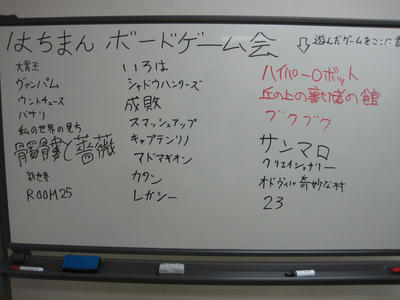 はちまんボードゲーム会
遊んだゲームをここに
大貧王
ヴァンパム
ウントチュース
バサリ
私の世界の見方
髑髏と薔薇
新世界
ROOM25
いろは
シャドウハンターズ
成敗
スマッシュアップ
キャプテンリノ
マドマギオン
カタン
レガシー
ハイパーロボット
丘の上の裏切り者の館
ブクブク
サンマロ
クリエイショナリー
オドヴィル奇妙な村
23